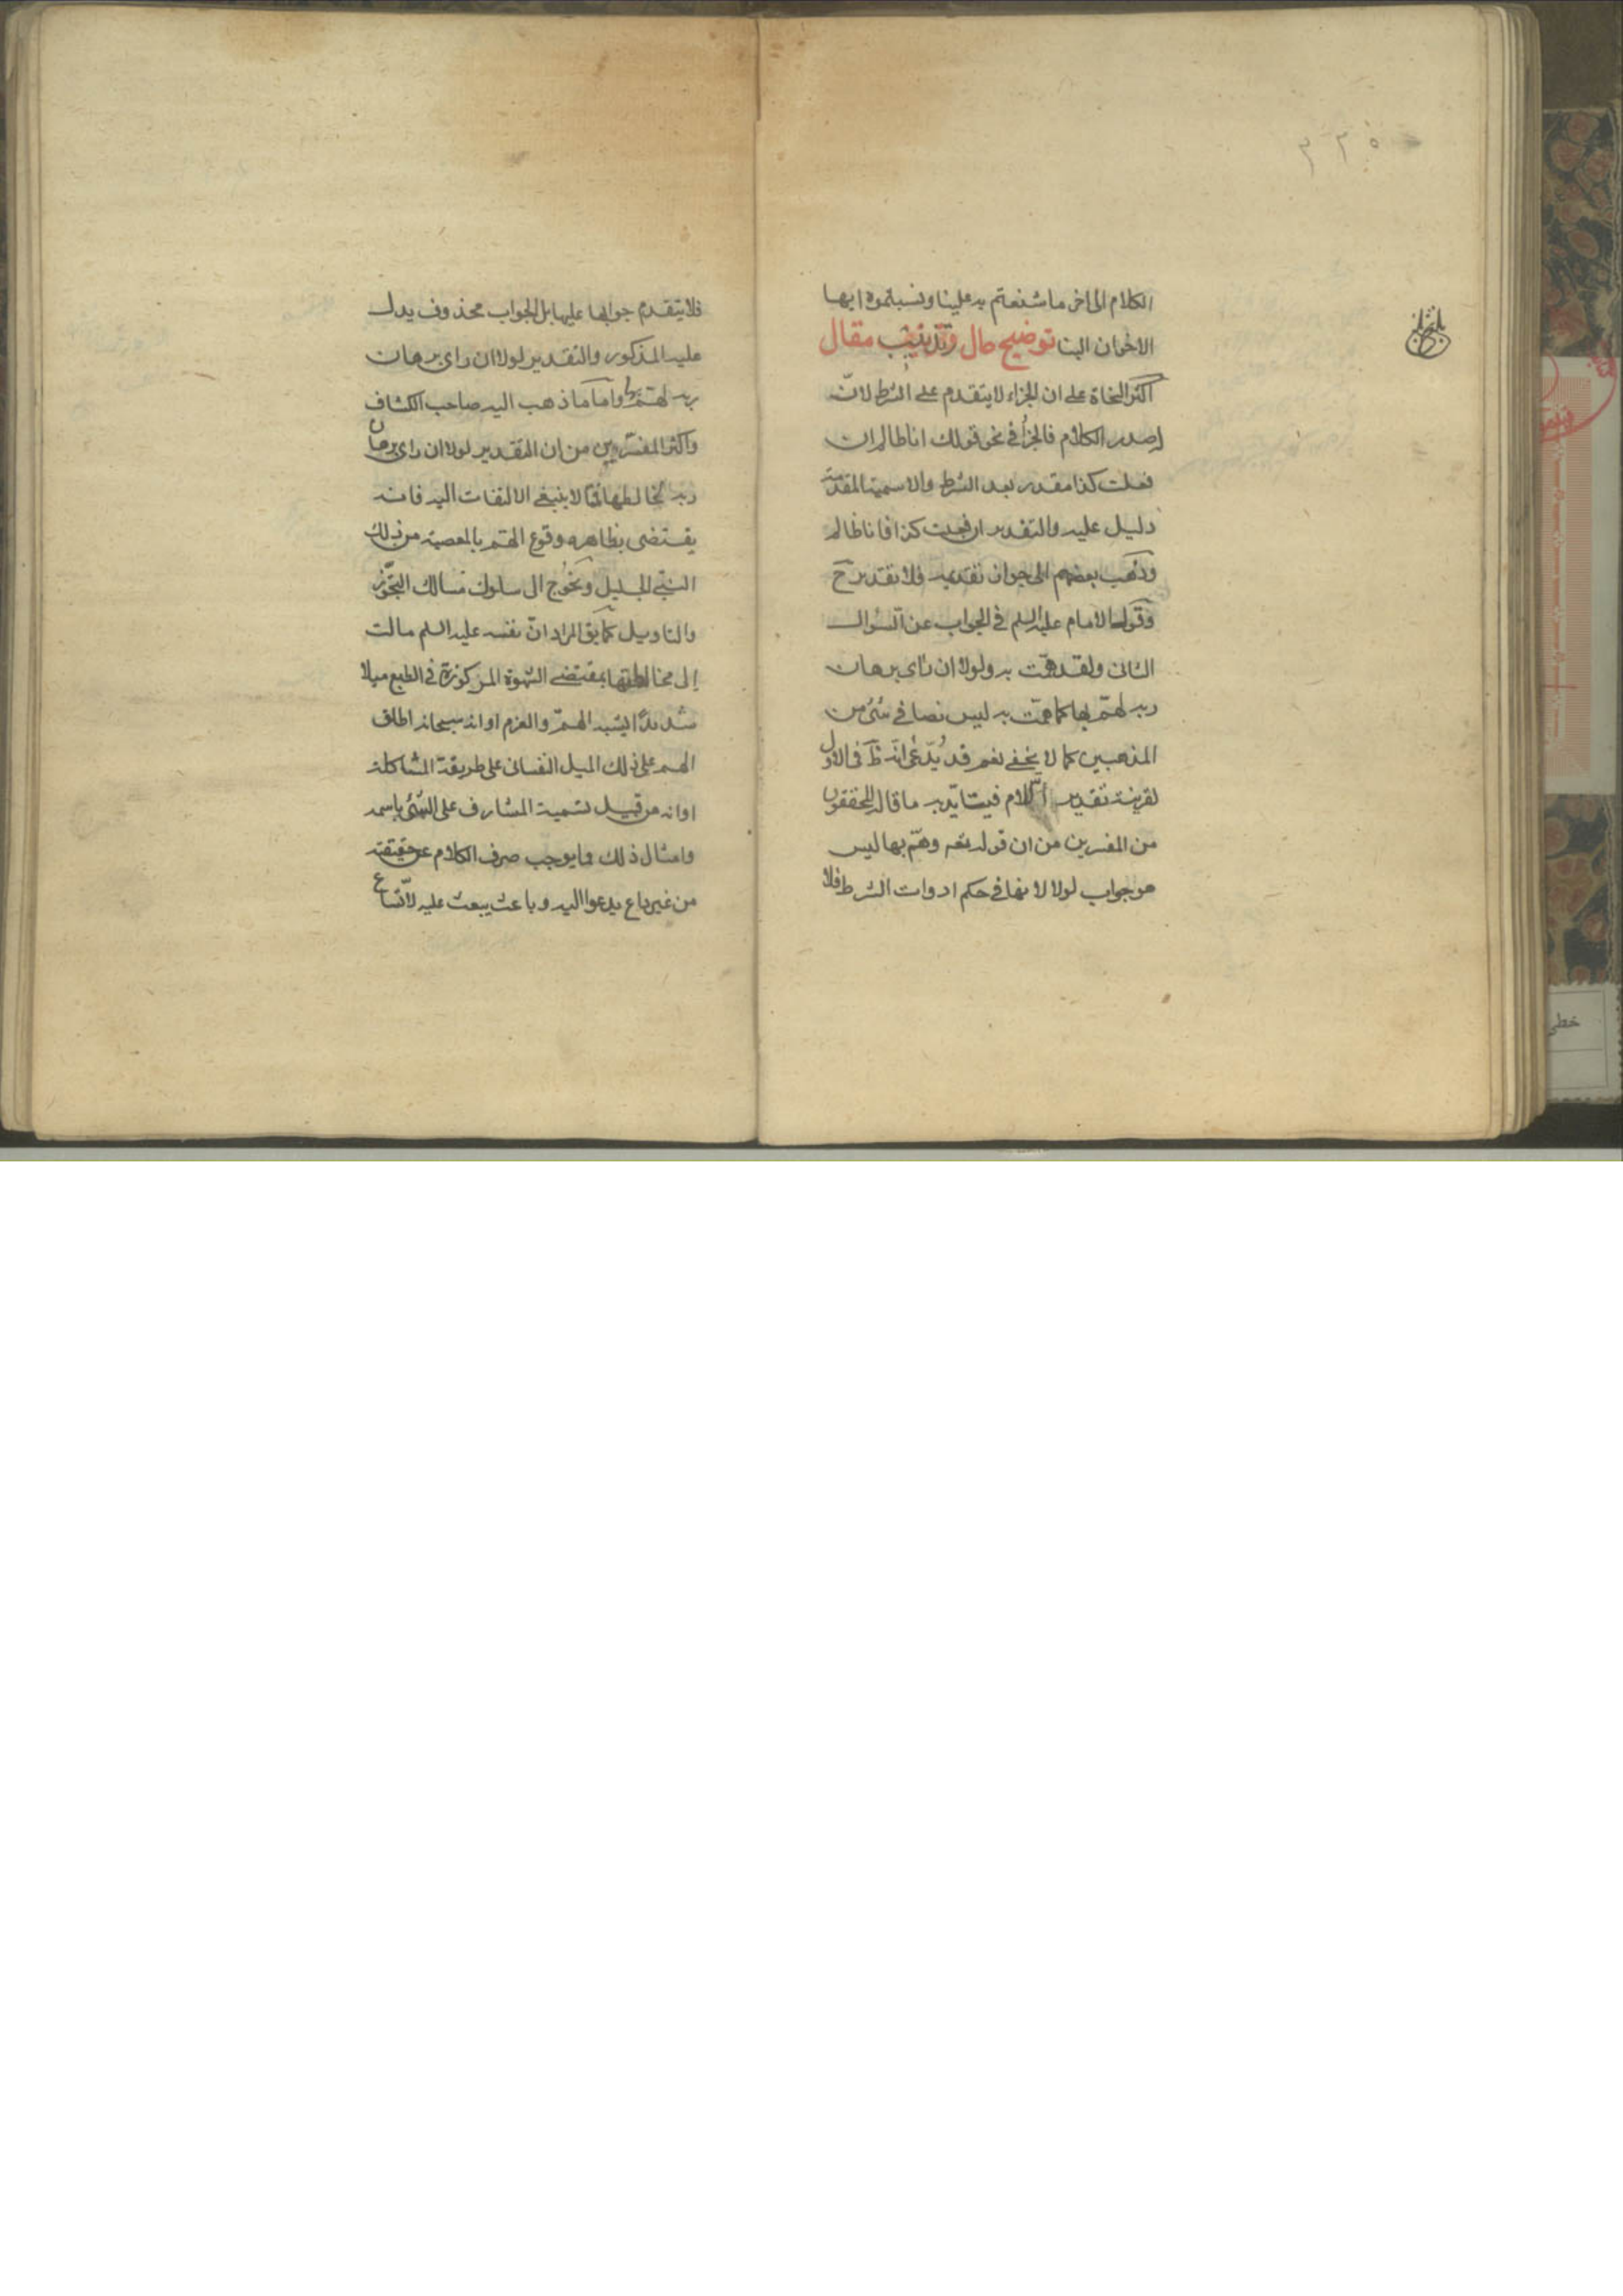 ٣٣٥
الكلام الى اخر ما شنعتم به علينا ونسبتموه ايها
الاخوان الينا توضيح حال وتذنيب مقال
اكثر النحاة على ان الجزاء لا يتقدم على الشرط لانّ
له صدر الكلام فالجزأ في نحو قولك انا ظالم ان
فعلت كذا مقدر بعد الشرط والاسمية المقدّمة
دليل عليه والتقدير ان فعلت كذا فانا ظالم
وذهب بعضهم الى جواز تقديمه فلا تقدير ح
وقول الامام عليه السلم في الجواب عن السؤال
الثانى ولقد همّت به ولولا ان رأى برهان
ربه لهمّ بها كما همّت به ليس نصا في شئ من
المذهبين كما لا يخفى نعم قد يُدّعى انّه ظ فى الاول
لقرينة تقدير اللام فيتايّد به ما قاله المحققون
من المفسرين من ان قوله تعه وهمّ بها ليس
هو جواب لولا لانها في حكم ادوات الشرط فلا
فلا يتقدم جوابها عليها بل الجواب محذوف يدل
عليه المذكور والتقدير لولا ان راى برهان
ربه لهمّ بها واما ما ذهب اليه صاحب الكشاف
واكثر المفسّرين من ان التقدير لولا ان راى برهان
ربه لخالطها فممّا لا ينبغى الالتفات اليه فانه
يقتضى بظاهره وقوع الهمّ بالمعصية من ذلك
النبىّ الجليل ويحوج الى سلوك مسالك التجوّز
والتاويل كما يق المراد انّ نفسه عليه السلم مالت
إلى مخالطتها بمقتضى الشهوة المركوزة في الطبع ميلا
شديدًا يشبه الهمّ والعزم او انه سبحانه اطلق
الهم على ذلك الميل النفسانى على طريقة المشاكلة
او انه من قبيل تسمية المشارف على الشئ باسمه
وامثال ذلك مما يوجب صرف الكلام عن حقيقته
من غير داع يدعوا اليه وباعث يبعث عليه لاتّساع
خطى